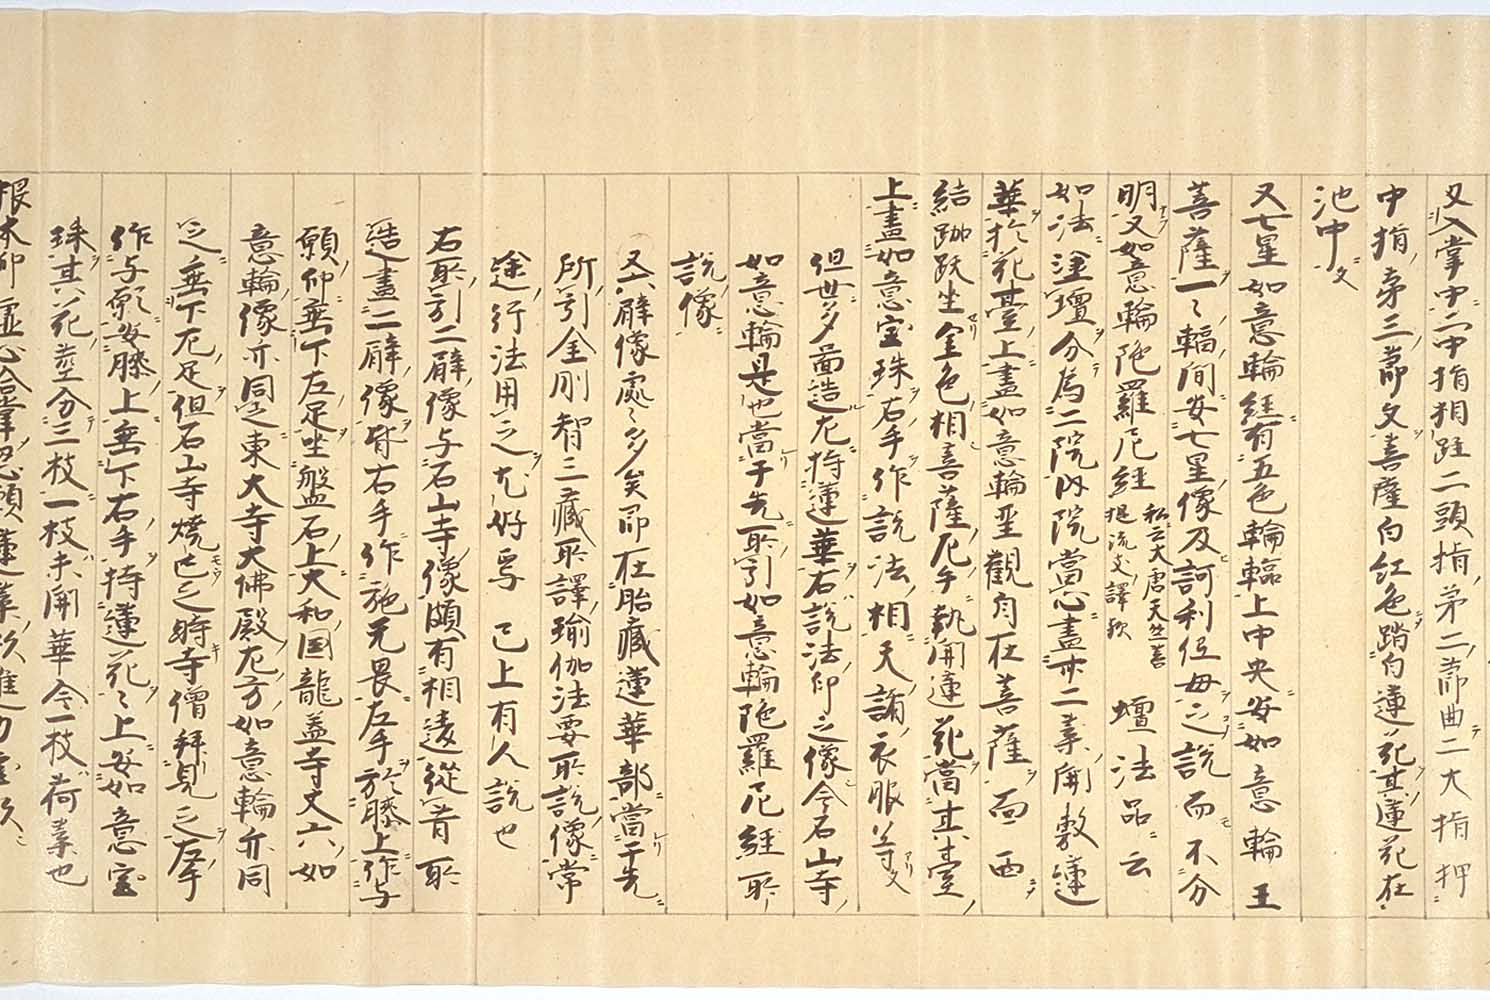 又入掌中二中指相跓二頭指第二節曲二大指押
中指第三節文菩薩白紅色踏白蓮花其蓮花在
池中文
又七星如意輪経有五色輪輪上中央安如意輪王
菩薩一〻輻間安七星像及訶利伍母之説而不分
明又如意輪陁羅尼経私云大唐天竺菩提流支譯欤 壇法品云
如法塗壇分為二院内院當心畫卅二葉開敷蓮
華於花臺上畫如意輪聖觀自在菩薩面西
結跏趺坐金色相菩薩左手執開蓮花當其臺
上畫如意宝珠右手作説法相天諸衣服等文
但世多畵造左持蓮華右説法印之像今石山寺
如意輪是也當于先所引如意輪陁羅尼経所
説像
又六臂像處〻多矣即在胎蔵蓮華部當于先
所引金剛智三蔵所譯瑜伽法要所説像常
途行法用之尤好乎 已上有人説也
右所引二臂像与石山寺像頗有相違從昔所
造畫二臂像皆右手作施无畏左手於膝上作与
願仰垂下左足坐盤石上大和国龍盖寺丈六如
意輪像亦同之東大寺大佛殿左方如意輪亦同
之垂下左足但石山寺焼亡之時寺僧拜見之左手
作与願安膝上垂下右手持蓮花〻上安如意宝
珠其花莖分三枝一枝未開華今一枝荷葉也
根本印虚心合掌忍願蓮葉